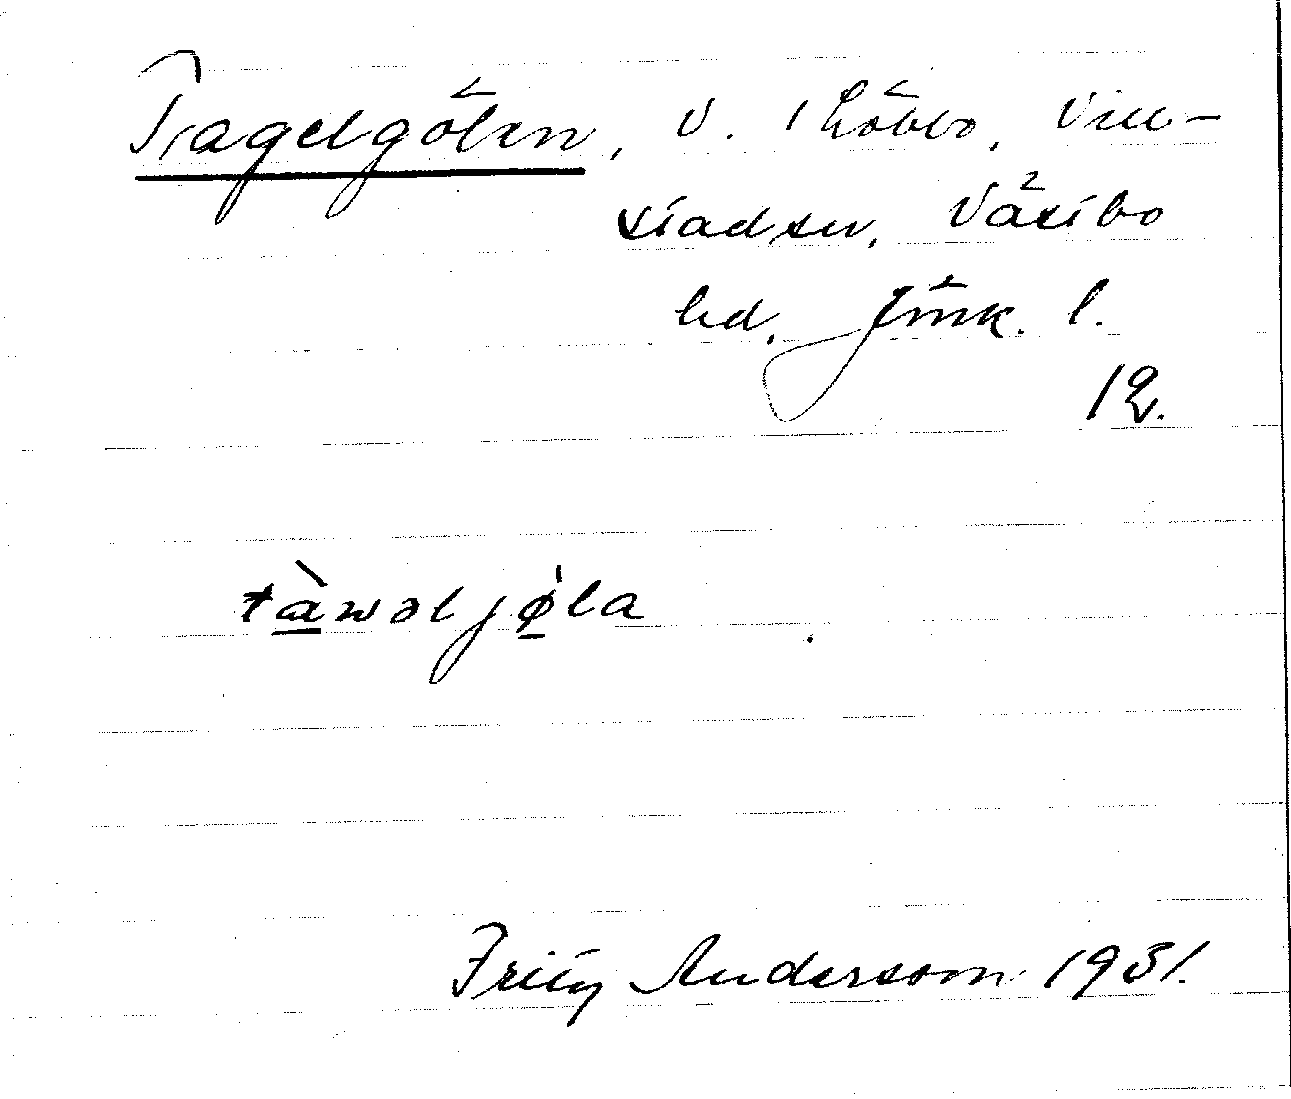 Tagelgölen, V. Thöbbo, Vill-
stads sn, Västbo
hd, Jönk. l.
12.
tàwəljøla
Fritz Anderson 1931.